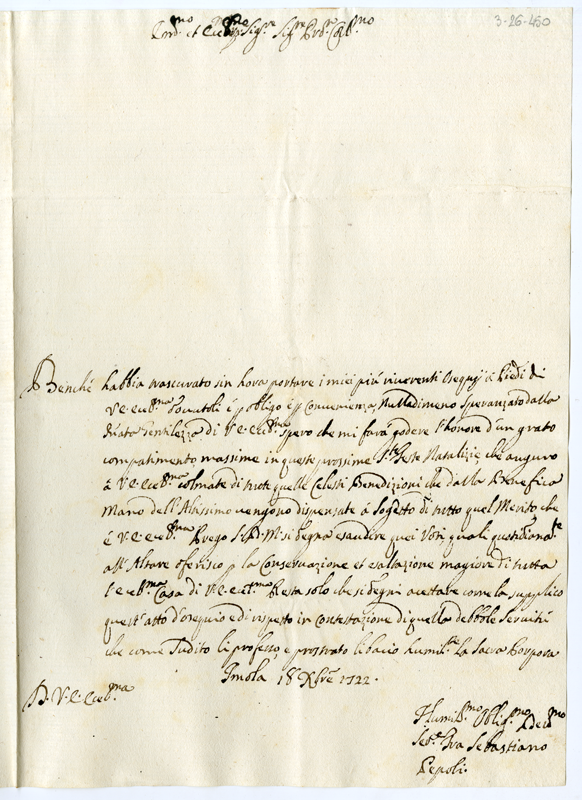 3-26-450
Em.mo et Ecc.mo Sig.re Sig.re Pron. Col.mo
Benché habbia trascurato sin hora portare i miei più riverenti Osequij à Piedi di
V.E. Ecc.ma Dovutoli é p obligo é p Convenienza, Nulladimeno speranzato dalla
Innata Gentilezza di V.E. Ecc.ma spero che mi farà godere l'honore d'un grato
compatimento massime in queste prossime S.te Feste Natalizie che auguro
à V.E. Ecc.ma colmate di tutte quelle Celesti Benedizioni che dalla Benefica
Mano dell'Altissimo vengono dispensate à Sogetto di tutto quel Merito che
é V.E. Ecc.ma Prego S.D.M. si degna esaudire quei Voti quali quotidiana.te
all'Altare oferisco p la Conservazione et esaltazione magiore di tutta
l'Ecc.ma Casa di V.E. Ecc.ma Resta solo che si degni acettare come la supplico
quest'atto d'osequio e di rispetto in Contestazione di quella debbole Servitù
che come Sudito li professo, e prostrato li bacio humil.te La Sacra Porpora
Imola 18 Xbre 1722.
D. V.E. Ecc.ma
Humil.mo Oblig.mo Dev.mo
Ser.e Fra Sebastiano
Pepoli.